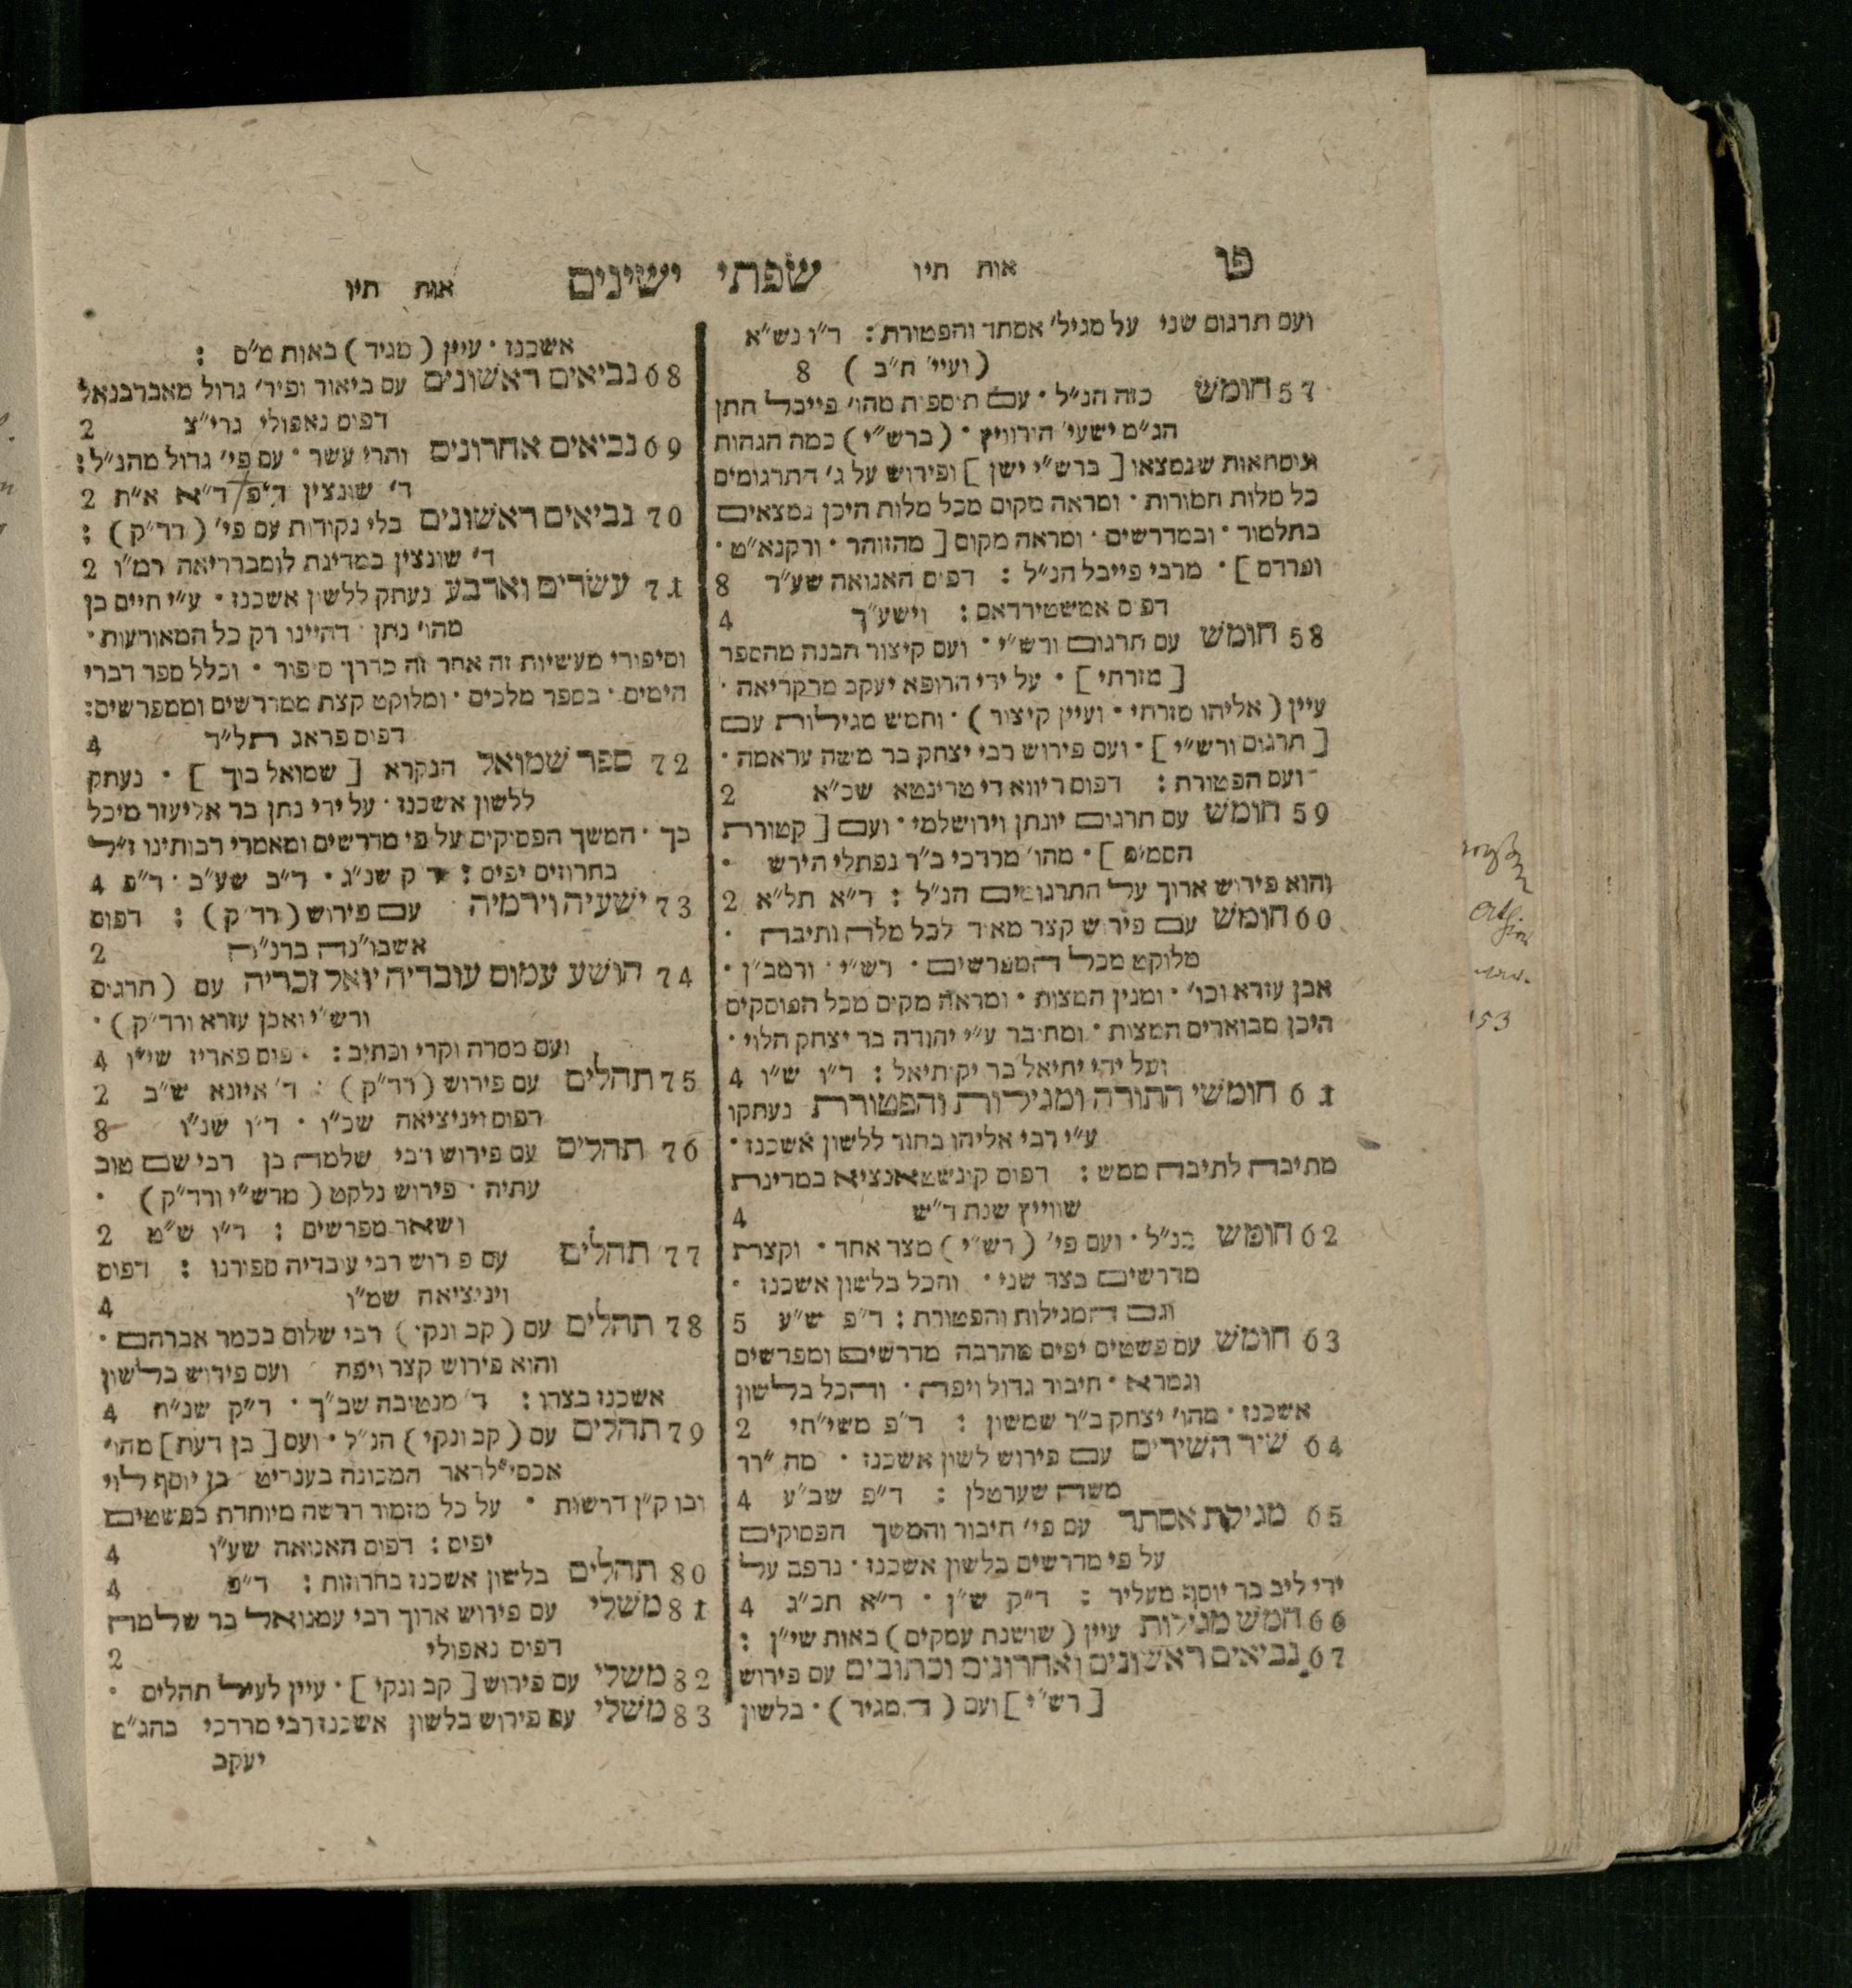 פו
אות תיו שפתי ישינים אות תיו
ועם תרגום שני על מגיל׳ אסתר והפטורת : ד״ו נש״א
( ועיי׳ ח״ב ) 8
57 חומש כזה הנ״ל · עם תוספות מהו׳ פייבל חתן
הג״מ ישעי׳ הורוויץ · ( ברש״י ) כמה הגהות
ונוסחאות שנמצאו [ ברש״י ישן ] ופירוש על ג׳ התרגומים
כל מלות חמורות · ומראה מקום מכל מלות היכן נמצאים
בתלמוד · ובמדרשים · ומראה מקום [ מהזוהר · ורקנא״ט ·
ופרדס ] · מרבי פייבל הנ״ל : דפוס האנואה שע״ד 8
דפוס אמשטירדאם : וישע״ך 4
58 חומש עם תרגום ורש״י · ועם קיצור הבנה מהספר
[ מזרחי ] · על ידי הרופא יעקב מרקריאה ·
עיין ( אליהו מזרחי · ועיין קיצור ) · וחמש מגילות עם
[ תרגום ורש״י ] · ועם פירוש רבי יצחק בר משה עראמה ·
ועם הפטורת : דפוס ריווא די טרינטא שכ״א 2
59 חומש עם תרגום יונתן וירושלמי · ועם [ קטורת
הסמים ] · מהו׳ מרדכי ב״ר נפתלי הירש ·
והוא פירוש ארוך על התרגומים הנ״ל : ד״א תל״א 2
60 חומש עם פירוש קצר מאוד לכל מלה ותיבה ·
מלוקט מכל המפרשים · רש״י · ורמב״ן ·
אבן עזרא וכו׳ · ומנין המצות · ומראה מקום מכל הפוסקים
היכן מבוארים המצות · ומחובר ע״י יהודה בר יצחק הלוי ·
ועל ידי יחיאל בר יקותיאל : ד״ו ש״ו 4
61 חומשי התורה ומגילות והפטורת נעתקו
ע״י רבי אליהו בחור ללשון אשכנז ·
מתיבה לתיבה ממש : דפוס קונשטאנציא במדינת
שווייץ שנת ד״ש 4
62 חומש כנ״ל · ועם פי׳ ( רש״י ) מצד אחד · וקצת
מדרשים בצד שני · והכל בלשון אשכנז ·
וגם המגילות והפטורת : ד״פ ש״ע 5
63 חומש עם פשטים יפים מהרבה מדרשים ומפרשים
וגמרא · חיבור גדול ויפה · והכל בלשון
אשכנז · מהו׳ יצחק ב״ר שמשון : ד״פ משי״חי 2
64 שיר השירים עם פירוש לשון אשכנז ·
משה שערטלן : ד״פ שב״ע 4
65 מגילת אסתר עם פי׳ חיבור והמשך הפסוקים
על פי מדרשים בלשון אשכנז · נדפס על
ידי ליב בר יוסף מעליר : ד״ק ש״ן · ד״א תכ״ג 4
66 חמש מגילות עיין ( שושנת עמקים ) באות שי״ן :
67 נביאים ראשונים ואחרונים וכתובים עם פירוש
[ רש״י ] ועם ( המגיד ) · בלשון
אשכנז · עיין ( מגיד ) באות מ״ם :
68 נביאים ראשונים עם ביאור ופיר׳ גדול מאברבנאל
דפוס נאפולי גרי״צ 2
69 נביאים אחרונים ותרי עשר · עם פי׳ גדול מהנ״ל :
ד׳ שונצין ד״פ ד״א א״ת 2
70 נביאים ראשונים בלי נקודות עם פי׳ ( רד״ק ) :
ד׳ שונצין במדינת לומברדיאה רמ״ו 2
71 עשרים וארבע נעתק ללשון אשכנז · ע״י חיים בן
מהו׳ נתן · דהיינו רק כל המאורעות ·
וסיפורי מעשיות זה אחר זה כדרך סיפור · וכלל ספר דברי
הימים · בספר מלכים · ומלוקט קצת ממדרשים וממפרשים :
דפוס פראג תל״ד 4
72 ספר שמואל הנקרא [ שמואל בוך ] · נעתק
ללשון אשכנז · על ידי נתן בר אליעזר מיכל
בך · המשך הפסוקים על פי מדרשים ומאמרי רבותינו ז״ל
בחרוזים יפים : ד״ק שנ״ג · ד״ב שע״ב · ד״פ 4
73 ישעיה וירמיה עם פירוש ( רד״ק ) : דפוס
אשבו״נה ברנ״ח 2
74 הושע עמוס עובדיה יואל זכריה עם ( תרגום
ורש״י ואבן עזרא ורד״ק ) ·
ועם מסרה וקרי וכתיב : דפוס פאריז שי״ו 4
75 תהלים עם פירוש ( רד״ק ) : ד׳ איזנא ש״ב 2
דפוס ויניציאה שכ״ו · ד״ו שנ״ו 8
76 תהלים עם פירוש רבי שלמה בן רבי שם טוב
עתיה · פירוש נלקט ( מרש״י ורד״ק ) ·
ושאר מפרשים : ד״ו ש״ט 2
77 תהלים עם פירוש רבי עובדיה ספורנו : דפוס
ויניציאה שמ״ו 4
78 תהלים עם ( קב ונקי ) רבי שלום בכמר אברהם ·
והוא פירוש קצר ויפה ועם פירוש בלשון
אשכנז בצדו : ד׳ מנטובה שכ״ך · ד״ק שנ״ח 4
79 תהלים עם ( קב ונקי ) הנ״ל · ועם [ בן דעת ] מהו׳
המכונה בענדיט בן יוסף לוי
ובו ק״ן דרשות · על כל מזמור דרשה מיוחדת בפשטים
יפים : דפוס האנואה שע״ו 4
80 תהלים בלשון אשכנז בחרוזות : ד״פ 4
81 משלי עם פירוש ארוך רבי עמנואל בר שלמה
דפוס נאפולי 2
82 משלי עם פירוש [ קב ונקי ] · עיין לעיל תהלים ·
83 משלי עם פירוש בלשון אשכנז רבי מרדכי בהג״מ
יעקב